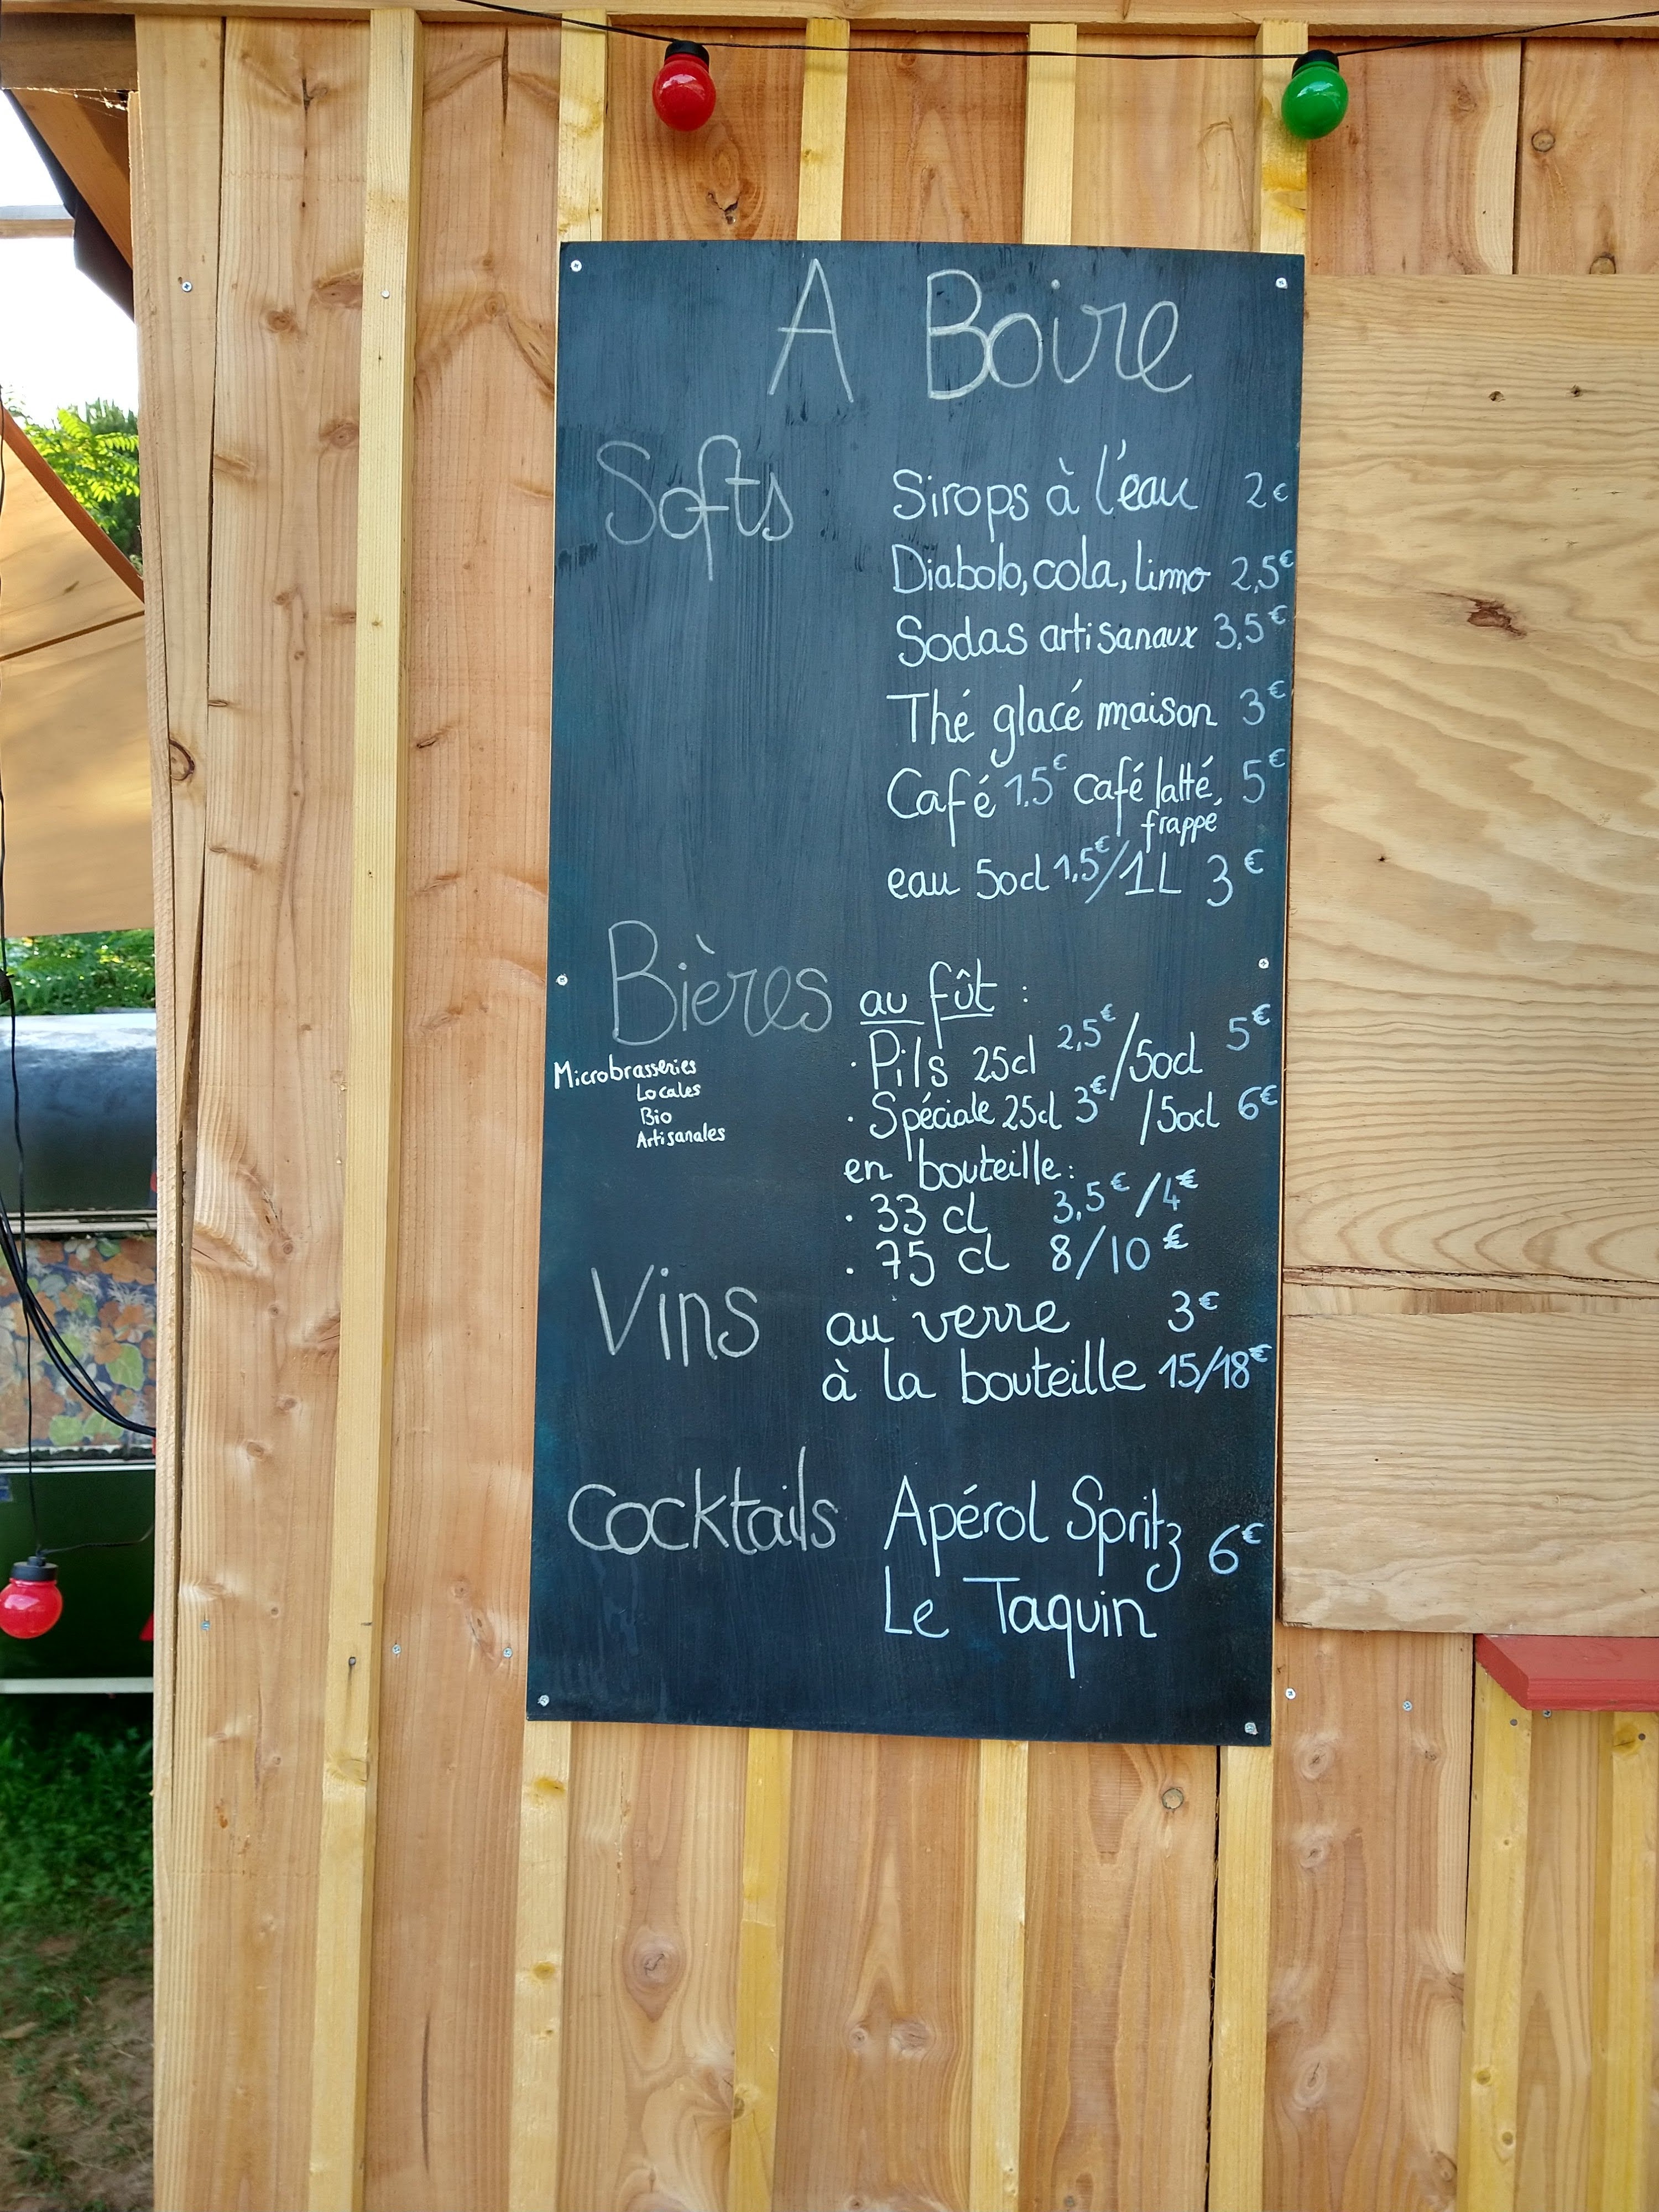 A Boire
Softs
Sirops à l'eau 2€
Diabolo, cola, limo 2,5€
Sodas artisanaux 3,5€
Thé glacé maison 3€
Café 1,5€ café latté, 5€
frappé
eau 50cl 1,5€/1L 3€
Bières
Microbrasseries
Locales
Bio
Artisanales
au fût :
· Pils 25cl 2,5€/50cl 5€
· Spéciale 25cl 3€/50cl 6€
en bouteille:
· 33 cl 3,5€/4€
· 75 cl 8/10€
Vins
au verre 3€
à la bouteille 15/18€
Cocktails
Apérol Spritz 6€
Le Taquin